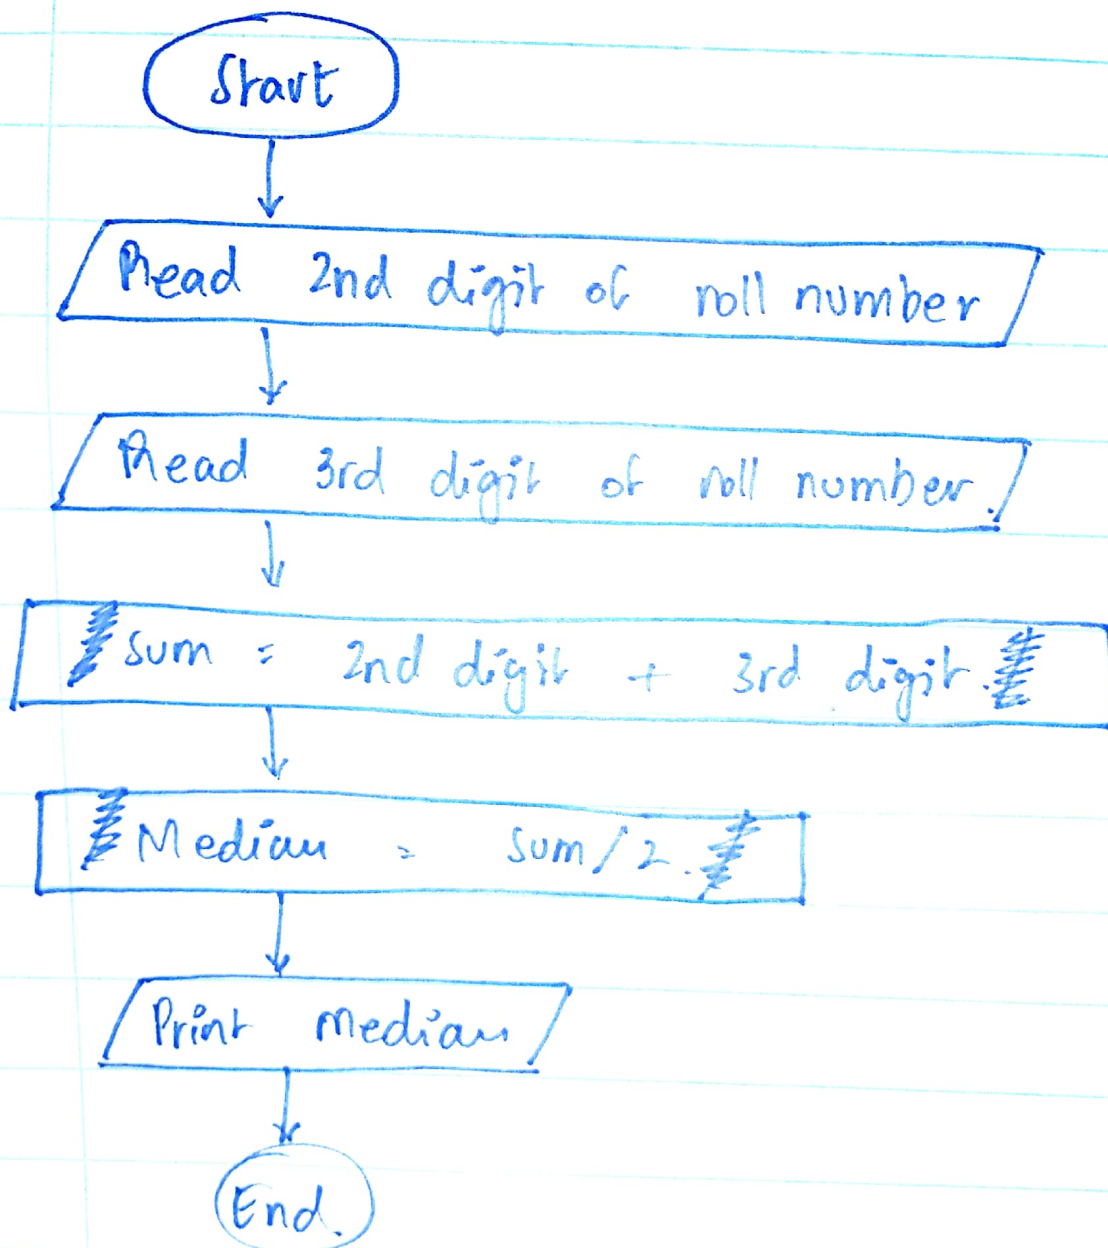 Start
Read 2nd digit of roll number
Read 3rd digit of roll number.
Sum = 2nd digit + 3rd digit.
Median = sum/2.
Print Median
End.